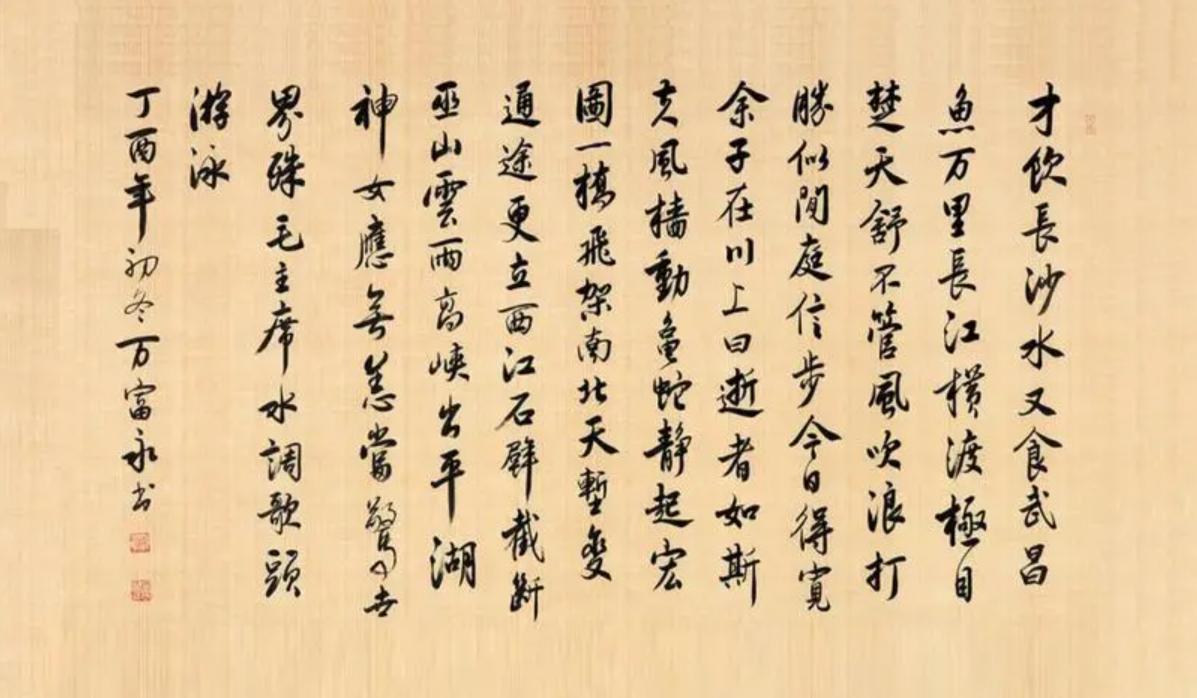 才飲長沙水又食武昌
魚万里長江横渡極目
楚天舒不管風吹浪打
勝似閒庭信步今日得寬
余子在川上曰逝者如斯
夫風檣動龜蛇靜起宏
圖一橋飛架南北天塹變
通途更立西江石壁截斷
巫山雲雨高峽出平湖
神女應無恙當驚世
界殊毛主席水調歌頭
游泳
丁酉年初冬万富永书